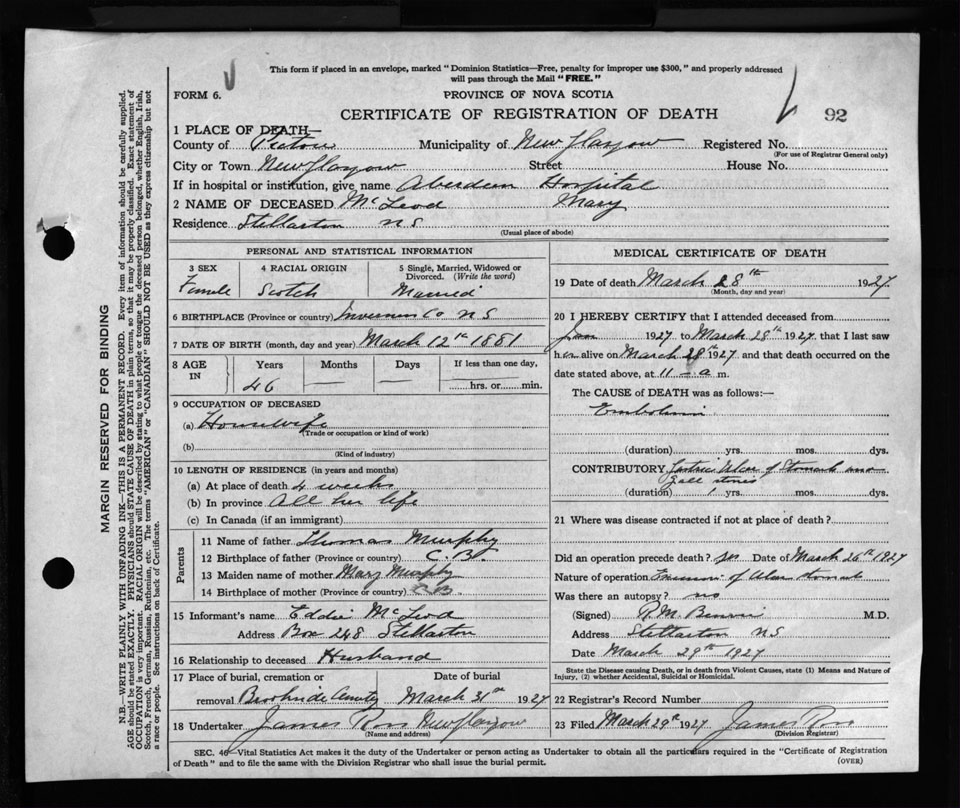 This form if placed in an envelope, marked "Dominion Statistics—Free, penalty for improper use $300," and properly addressed
will pass through the Mail "FREE."
FORM 6.
PROVINCE OF NOVA SCOTIA
CERTIFICATE OF REGISTRATION OF DEATH
92
1 PLACE OF DEATH—
County of Pictou Municipality of New Glasgow Registered No.
(For use of Registrar General only)
City or Town New Glasgow Street House No.
If in hospital or institution, give name Aberdeen Hospital
2 NAME OF DECEASED McLeod Mary
Residence Stellarton N S
(Usual place of abode)
PERSONAL AND STATISTICAL INFORMATION
3 SEX 4 RACIAL ORIGIN 5 Single, Married, Widowed or
Divorced. (Write the word)
Female Scotch Married
6 BIRTHPLACE (Province or country) Inverness Co N S
7 DATE OF BIRTH (month, day and year) March 12th 1881
8 AGE IN Years Months Days If less than one day,
46 — — hrs. or min.
9 OCCUPATION OF DECEASED
(a) Housewife
(Trade or occupation or kind of work)
(b)
(Kind of industry)
10 LENGTH OF RESIDENCE (in years and months)
(a) At place of death 4 weeks
(b) In province All her life
(c) In Canada (if an immigrant)
Parents
11 Name of father Thomas Murphy
12 Birthplace of father (Province or country) C. B.
13 Maiden name of mother Mary Murphy
14 Birthplace of mother (Province or country) C. B.
15 Informant's name Eddie McLeod
Address Box 248 Stellarton
16 Relationship to deceased Husband
17 Place of burial, cremation or Date of burial
removal March 31st 1927
18 Undertaker James Ross New Glasgow
(Name and address)
MEDICAL CERTIFICATE OF DEATH
19 Date of death March 28th 1927
(Month, day and year)
20 I HEREBY CERTIFY that I attended deceased from
Jan 1927 to March 28th 1927 that I last saw
her alive on March 28th 1927 and that death occurred on the
date stated above, at 11 — a m.
The CAUSE OF DEATH was as follows:—
Embolism
(duration) yrs. mos. dys.
CONTRIBUTORY Gastric Ulcer of Stomach and
gall stones
(duration) 1 yrs. mos. dys.
21 Where was disease contracted if not at place of death?
Did an operation precede death? yes Date of March 26th 1927
Nature of operation Excision of Ulcer stomach
Was there an autopsy? no
(Signed) R. M. M.D.
Address Stellarton N S
Date March 29th 1927
State the Disease causing Death, or in death from Violent Causes, state (1) Means and Nature of
Injury, (2) whether Accidental, Suicidal or Homicidal.
22 Registrar's Record Number
23 Filed March 29th 1927 James Ross
(Division Registrar)
SEC. 46—Vital Statistics Act makes it the duty of the Undertaker or person acting as Undertaker to obtain all the particulars required in the "Certificate of Registration
of Death" and to file the same with the Division Registrar who shall issue the burial permit.
(OVER)
MARGIN RESERVED FOR BINDING
N.B.—WRITE PLAINLY WITH UNFADING INK—THIS IS A PERMANENT RECORD. Every item of information should be carefully supplied.
AGE should be stated EXACTLY. PHYSICIANS should STATE CAUSE OF DEATH in plain terms, so that it may be properly classified. Exact statement of
OCCUPATION is very important. RACIAL ORIGIN will be described by stating to what people or tongue the deceased person belonged, whether English, Irish,
Scotch, French, German, Russian, Ruthenian, etc. The terms "AMERICAN" or "CANADIAN" SHOULD NOT BE USED as they express citizenship but not
a race or people. See instructions on back of Certificate.